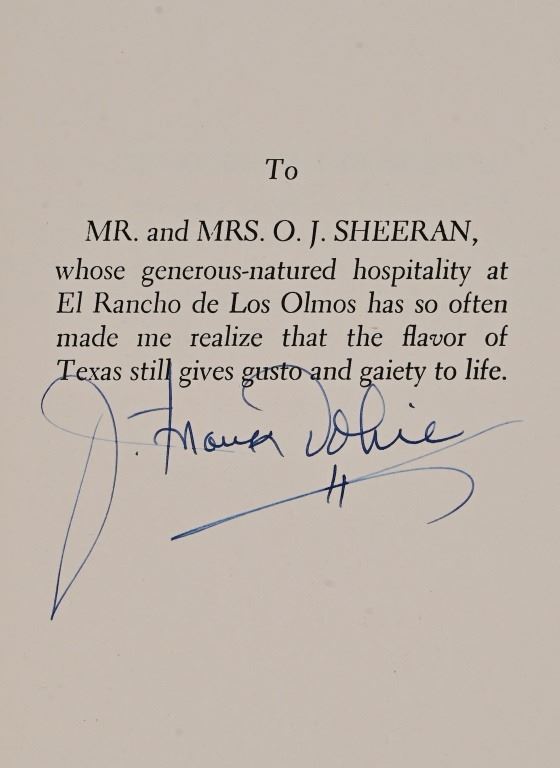 To
MR. and MRS. O. J. SHEERAN,
whose generous-natured hospitality at
El Rancho de Los Olmos has so often
made me realize that the flavor of
Texas still gives gusto and gaiety to life.
J. Frank Dobie